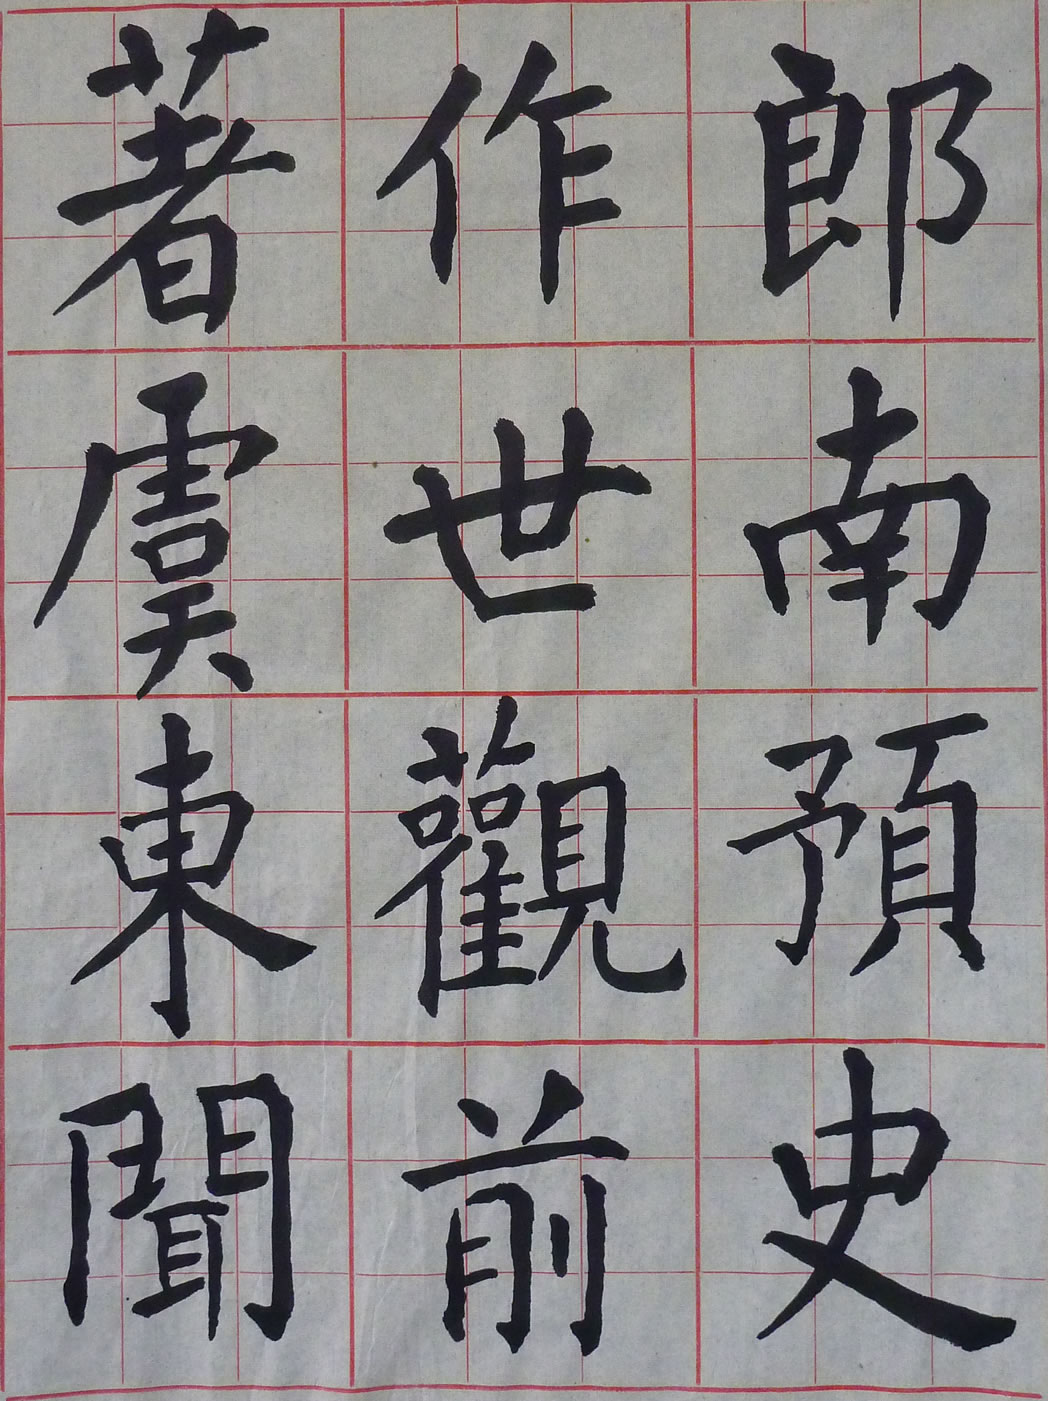 著作郎
虞世南
東觀預
聞前史